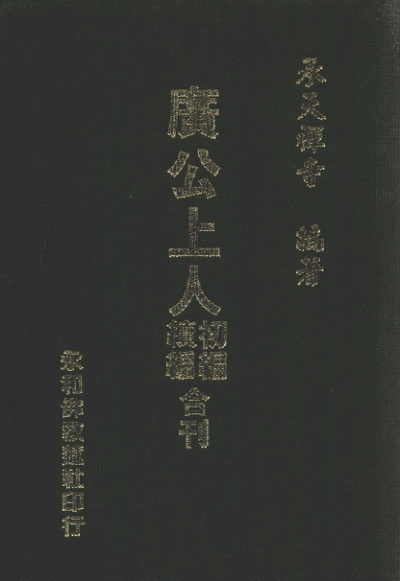 承天禪寺 編著
廣公上人初編續編合刊
永和佛教蓮社印行